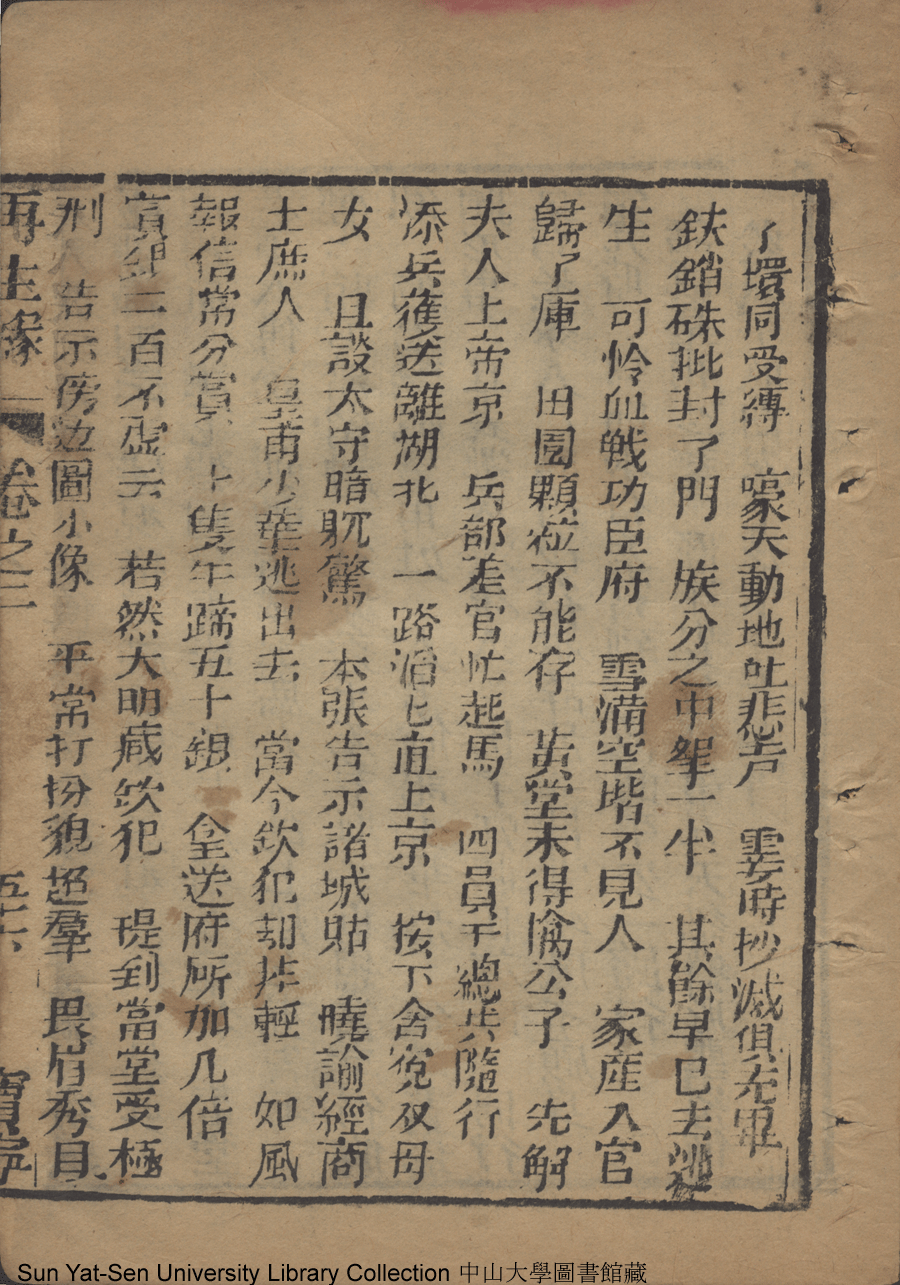 了環同受縛 嚎天動地吐悲声 霎時抄滅俱充軍
鈇銷硃批封了門 族分之中拏一半 其餘早已去逃
生 可怜血戦功臣府 雪滿空堦不見人 家産入官
歸了庫 田園顆粒不能存 黃堂未得擒公子 先解
夫人上帝京 兵部差官忙起馬 四員千總兵隨行
添兵護送離湖北 一路滔匕直上京 按下舍寃双母
女 且談太守暗躭驚 本張告示諸城貼 曉諭經商
士庶人 皇甫少華逃出去 當今欽犯却非輕 如風
報信常分賞 十隻牛蹄五十銀 拿送府所加几倍
賞銀二百不虛云 若然大明蔵欽犯 提到當堂受極
刑 告示傍边圖小像 平常打扮貌超羣 畏眉秀目
再生緣 卷之三 五十六 寳寧
Sun Yat-Sen University Library Collection 中山大學圖書館藏